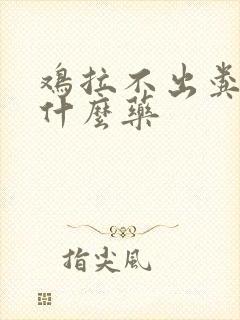 鸡拉不出粪
什麼藥
指尖风